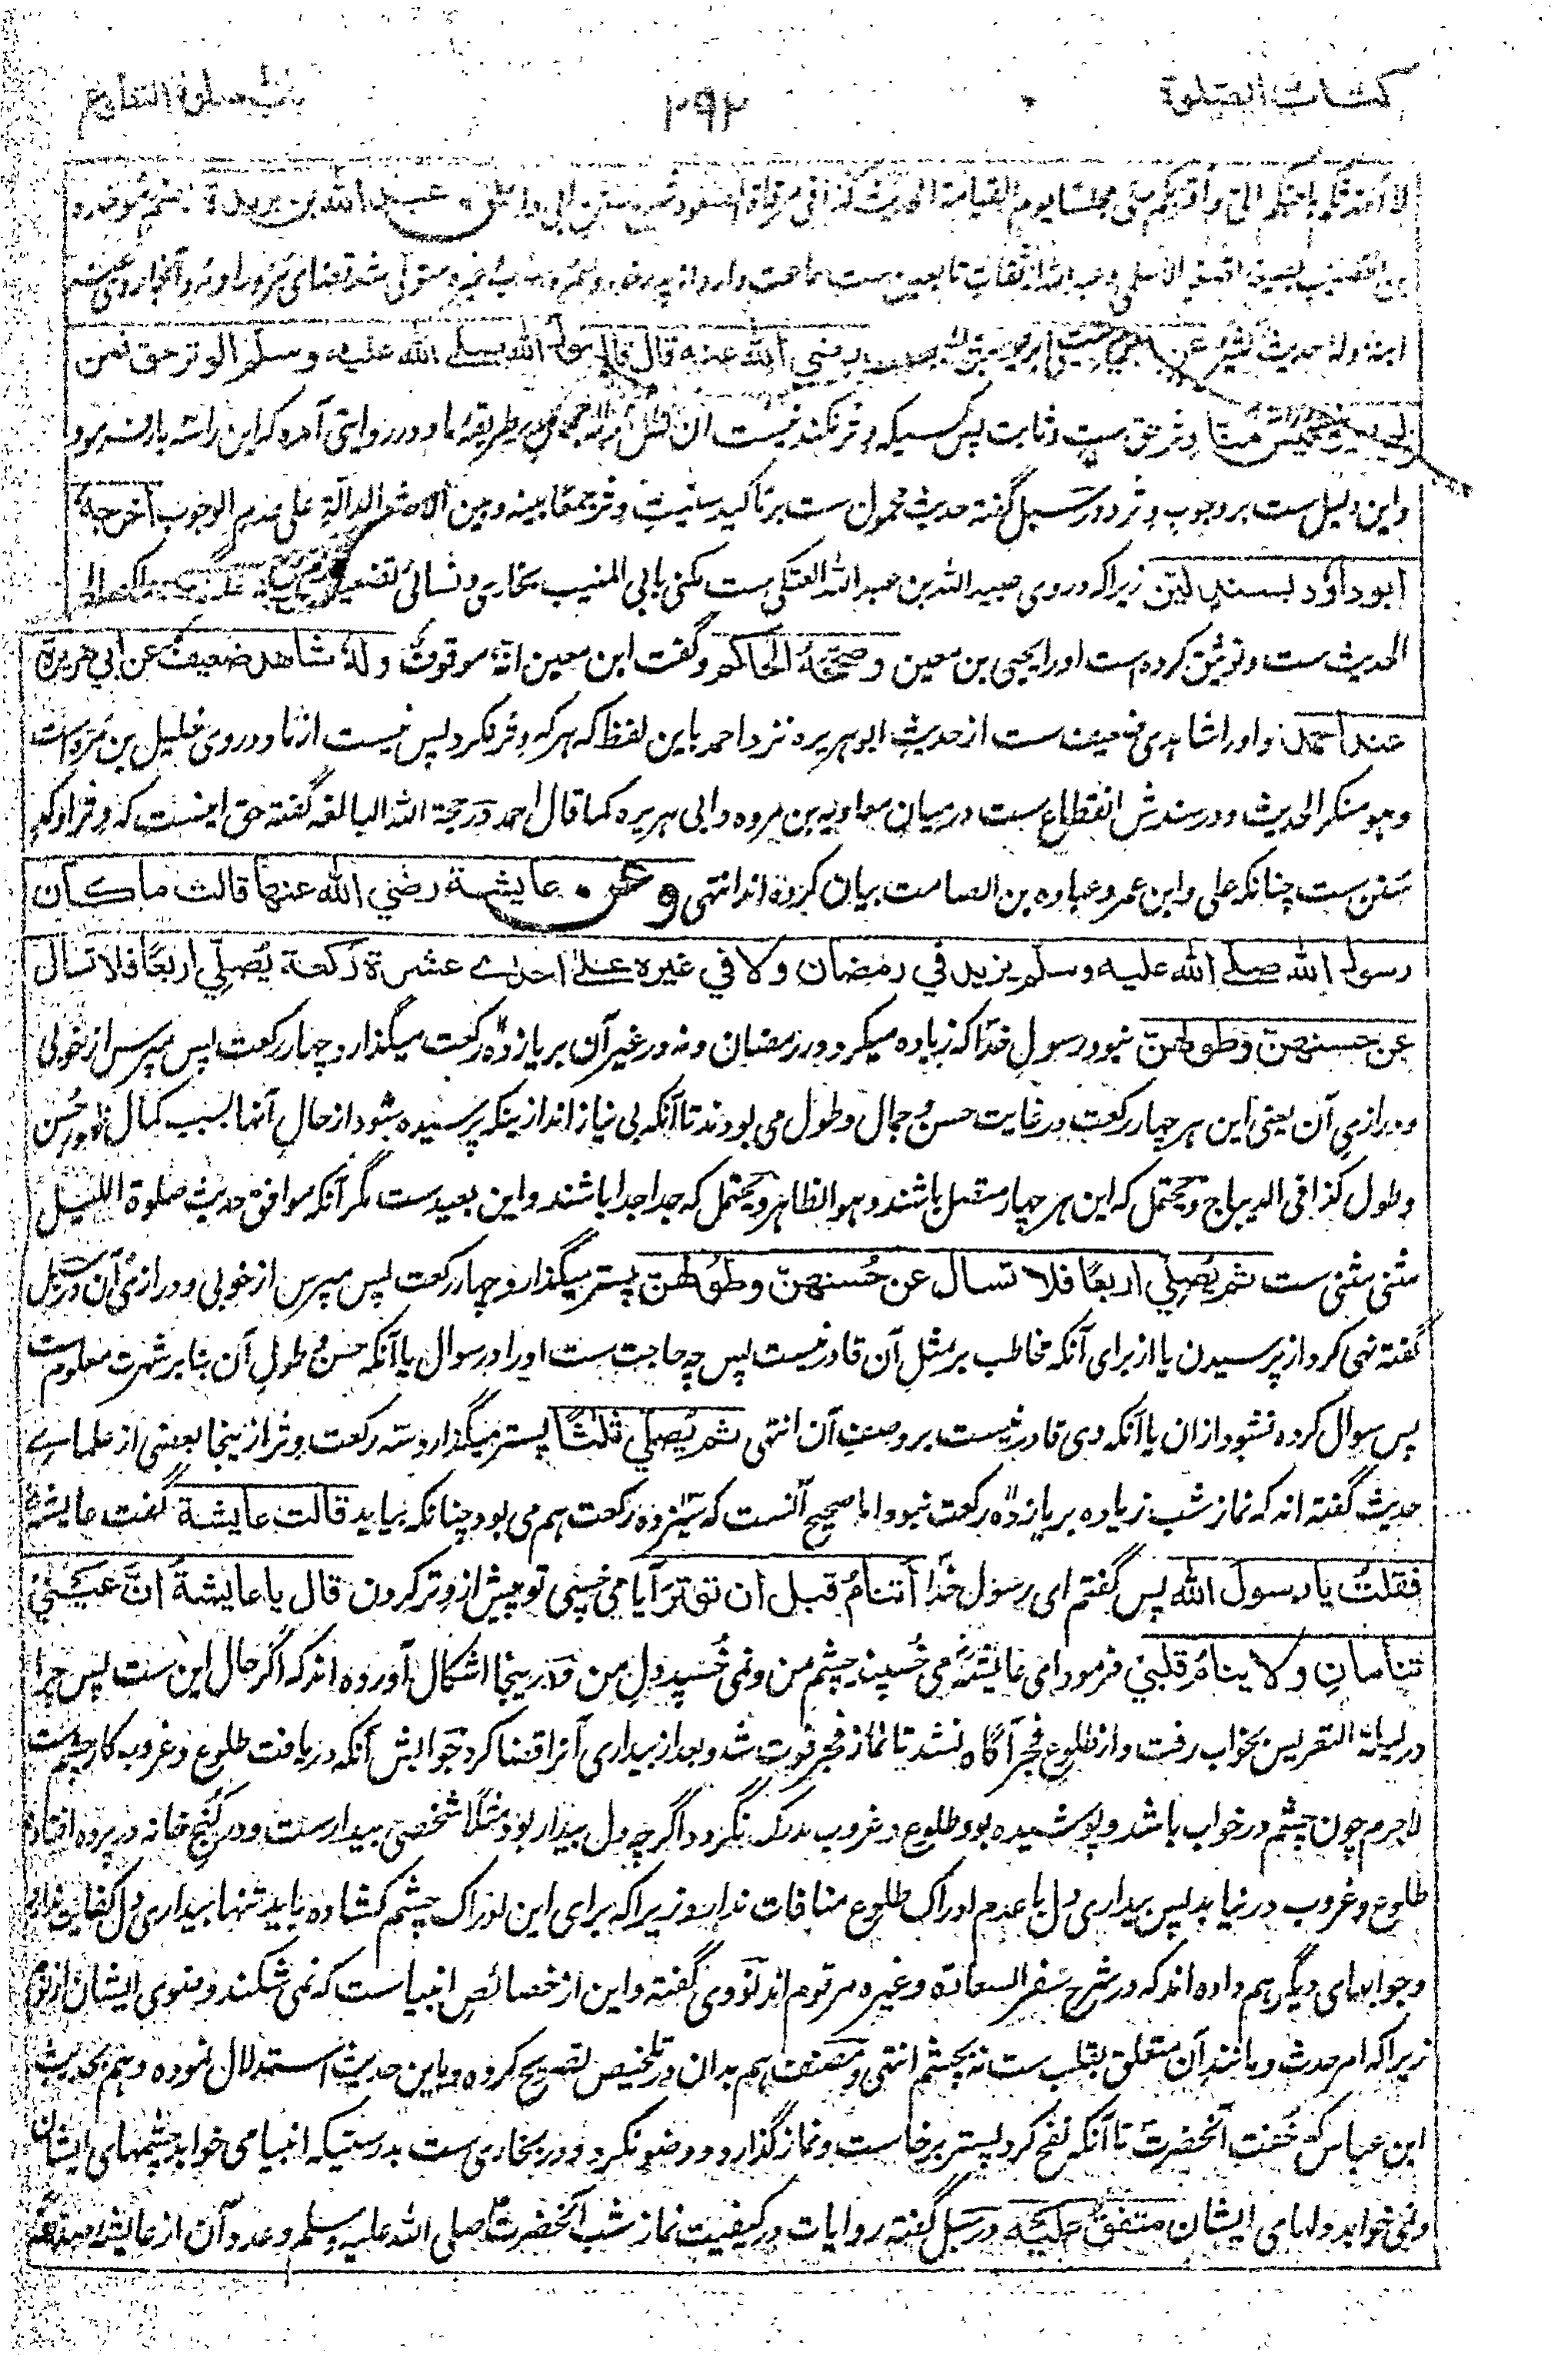 کتاب الصلوة ۲۹۲ باب صلوة التطوع
لا أحبكم الی وأقربكم منی مجلسا يوم القيامة الحديث كذا فی مرقاة الصعود عبد الله بن بريدة بضم موحده
بن الحصیب الاسلمی از ثقات تابعین ست سماعت دارد از پدر خود و متولی شد قضای مرو را
ابنه وله حديث كثير عن ابيه رضي الله عنه قال قال رسول الله صلے الله عليه وسلم الوتر حق فمن
لم يوتر فليس منا وتر حق ست و ثابت پس کسیکه وتر نکند نیست بر طریقهٔ ما و در روایتی آمده که این را سه بار فرمود
و این دلیل ست بر وجوب وتر و در سبل گفته حدیث محمول ست بر تاکید سنیت وتر جمعا بینه و بین الاحادیث الدالة علی عدم الوجوب أخرجه
ابوداؤد بسند لين زیراکه در وی عبید الله بن عبد الله العتکی ست مکنی بابی المنیب بخاری و نسائی تضعیف
الحدیث ست و توثیق کرده ست او را یحیی بن معین وصححه الحاكم و گفت ابن معین انه موقوف وله شاهد ضعيف عن ابي هريرة
عند احمد و او را شاهدی ضعیف ست از حدیث ابو هریره نزد احمد باین لفظ که هر که وتر نکرد پس نیست از ما و در وی خلیل بن مره است
و هو منکر الحدیث و در سندش انقطاع ست در میان معاویه بن مروه و ابی هریره کما قال احمد و در حجة الله البالغه گفته حق اینست که وتر اوکد
سنن ست چنانکه علی و ابن عمر و عباده بن الصامت بیان کرده اند انتهی وعن عايشة رضي الله عنها قالت ما كان
رسول الله صلے الله عليه وسلم يزيد في رمضان ولا في غيره علے احدے عشرة ركعة يُصلّي اربعًا فلا تسال
عن حسنهن وطولهن نبود رسول خدا که زیاده میکرد در رمضان و نه در غیر آن بر یازده رکعت میگذارد چهار رکعت پس مپرس از خوبی
و درازی آن یعنی این هر چهار رکعت در غایت حسن و جمال و طول می بودند تا آنکه بی نیاز اند از ینکه پرسیده شود از حال آنها بسبب کمال ظهور حسن
و طول کذا فی الدیباج و یحتمل که این هر چهار متصل باشند و هو الظاهر و یحتمل که جدا جدا باشند و این بعید ست مگر آنکه موافق حدیث صلوة اللیل
مثنی مثنی ست ثم يُصلّي اربعًا فلا تسال عن حُسنهن وطولهن پستر میگذارد چهار رکعت پس مپرس از خوبی و درازی آن در سبل
گفته نهی کرد از پرسیدن یا از برای آنکه مخاطب بر مثل آن قادر نیست پس چه حاجت ست او را در سوال یا آنکه حسن و طول آن بنا بر شهرت معلوم ست
پس سوال کرده نشود از ان یا آنکه وی قادر نیست بر وصف آن انتهی ثم يُصلّي ثلثًا پستر میگذارد سه رکعت وتر از ینجا بعضی از علماے
حدیث گفته اند که نماز شب زیاده بر یازده رکعت نبود اما صحیح آنست که سیزده رکعت هم می بود چنانکه بیاید قالت عايشة گفت عایشه
فقلتُ يا رسول الله پس گفتم ای رسول خدا أتنام قبل ان توتر آیا می خسپی تو پیش از وتر کردن قال يا عايشةُ انَّ عينَيَّ
تنامانِ ولا ينام قلبي فرمود ای عایشه می خسپند چشم من و نمی خسپد دل من و در ینجا اشکال آورده اند که اگر حال این ست پس چرا
در لیلة التعریس بخواب رفت و از طلوع فجر آگاه نشد تا نماز فجر فوت شد و بعد از بیداری آنرا قضا کرد جوابش آنکه دریافت طلوع و غروب کار چشم ست
لا جرم چون چشم در خواب باشد و پوشیده بود طلوع و غروب مدرک نگردد اگر چه دل بیدار بود مثلا شخصی بیدار ست و در کنج خانه در پرده افتاده
طلوع و غروب در نیابد پس بیداری دل با عدم ادراک طلوع منافات ندارد زیراکه برای این ادراک چشم کشاده باید تنها بیداری دل کفایت ندارد
و جوابهای دیگر هم داده اند که در شرح سفر السعادة و غیره مرقوم اند نووی گفته و این از خصائص انبیا ست که نمی شکند وضوی ایشان از نوم
زیراکه امر حدث و مانند آن متعلق بقلب ست نه بچشم انتهی و مصنف هم بدان در تلخیص تصریح کرده و باین حدیث استدلال نموده و هم بحدیث
ابن عباس که خفت آنحضرت تا آنکه نفخ کرد پستر برخاست و نماز گذارد و وضو نکرد و در بخاری ست بدرستیکه انبیا می خوابد چشمهای ایشان
و نمی خوابد دلهای ایشان متفق عليه در سبل گفته روایات در کیفیت نماز شب آنحضرت صلی الله علیه وسلم و عدد آن از عایشه